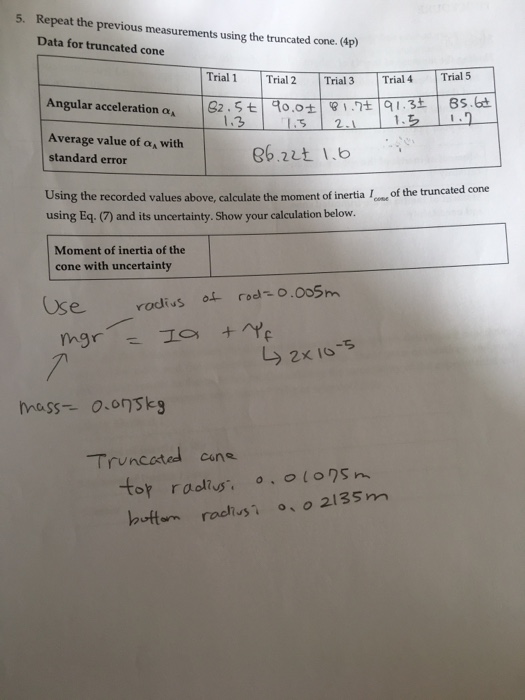 5. Repeat the previous measurements using the truncated cone. (4p)
Data for truncated cone
Trial 1 Trial 2 Trial 3 Trial 4 Trial 5
Angular acceleration αA 82.5± 90.0± 81.7± 91.3± 85.6±
1.3 1.5 2.1 1.5 1.7
Average value of αA with
standard error
86.22± 1.6
Using the recorded values above, calculate the moment of inertia Icone of the truncated cone
using Eq. (7) and its uncertainty. Show your calculation below.
Moment of inertia of the
cone with uncertainty
Use radius of rod=0.005m
mgr = Iα + τf
↳ 2×10-5
mass= 0.075kg
Truncated cone
top radius: 0.01075m
bottom radius: 0.02135m